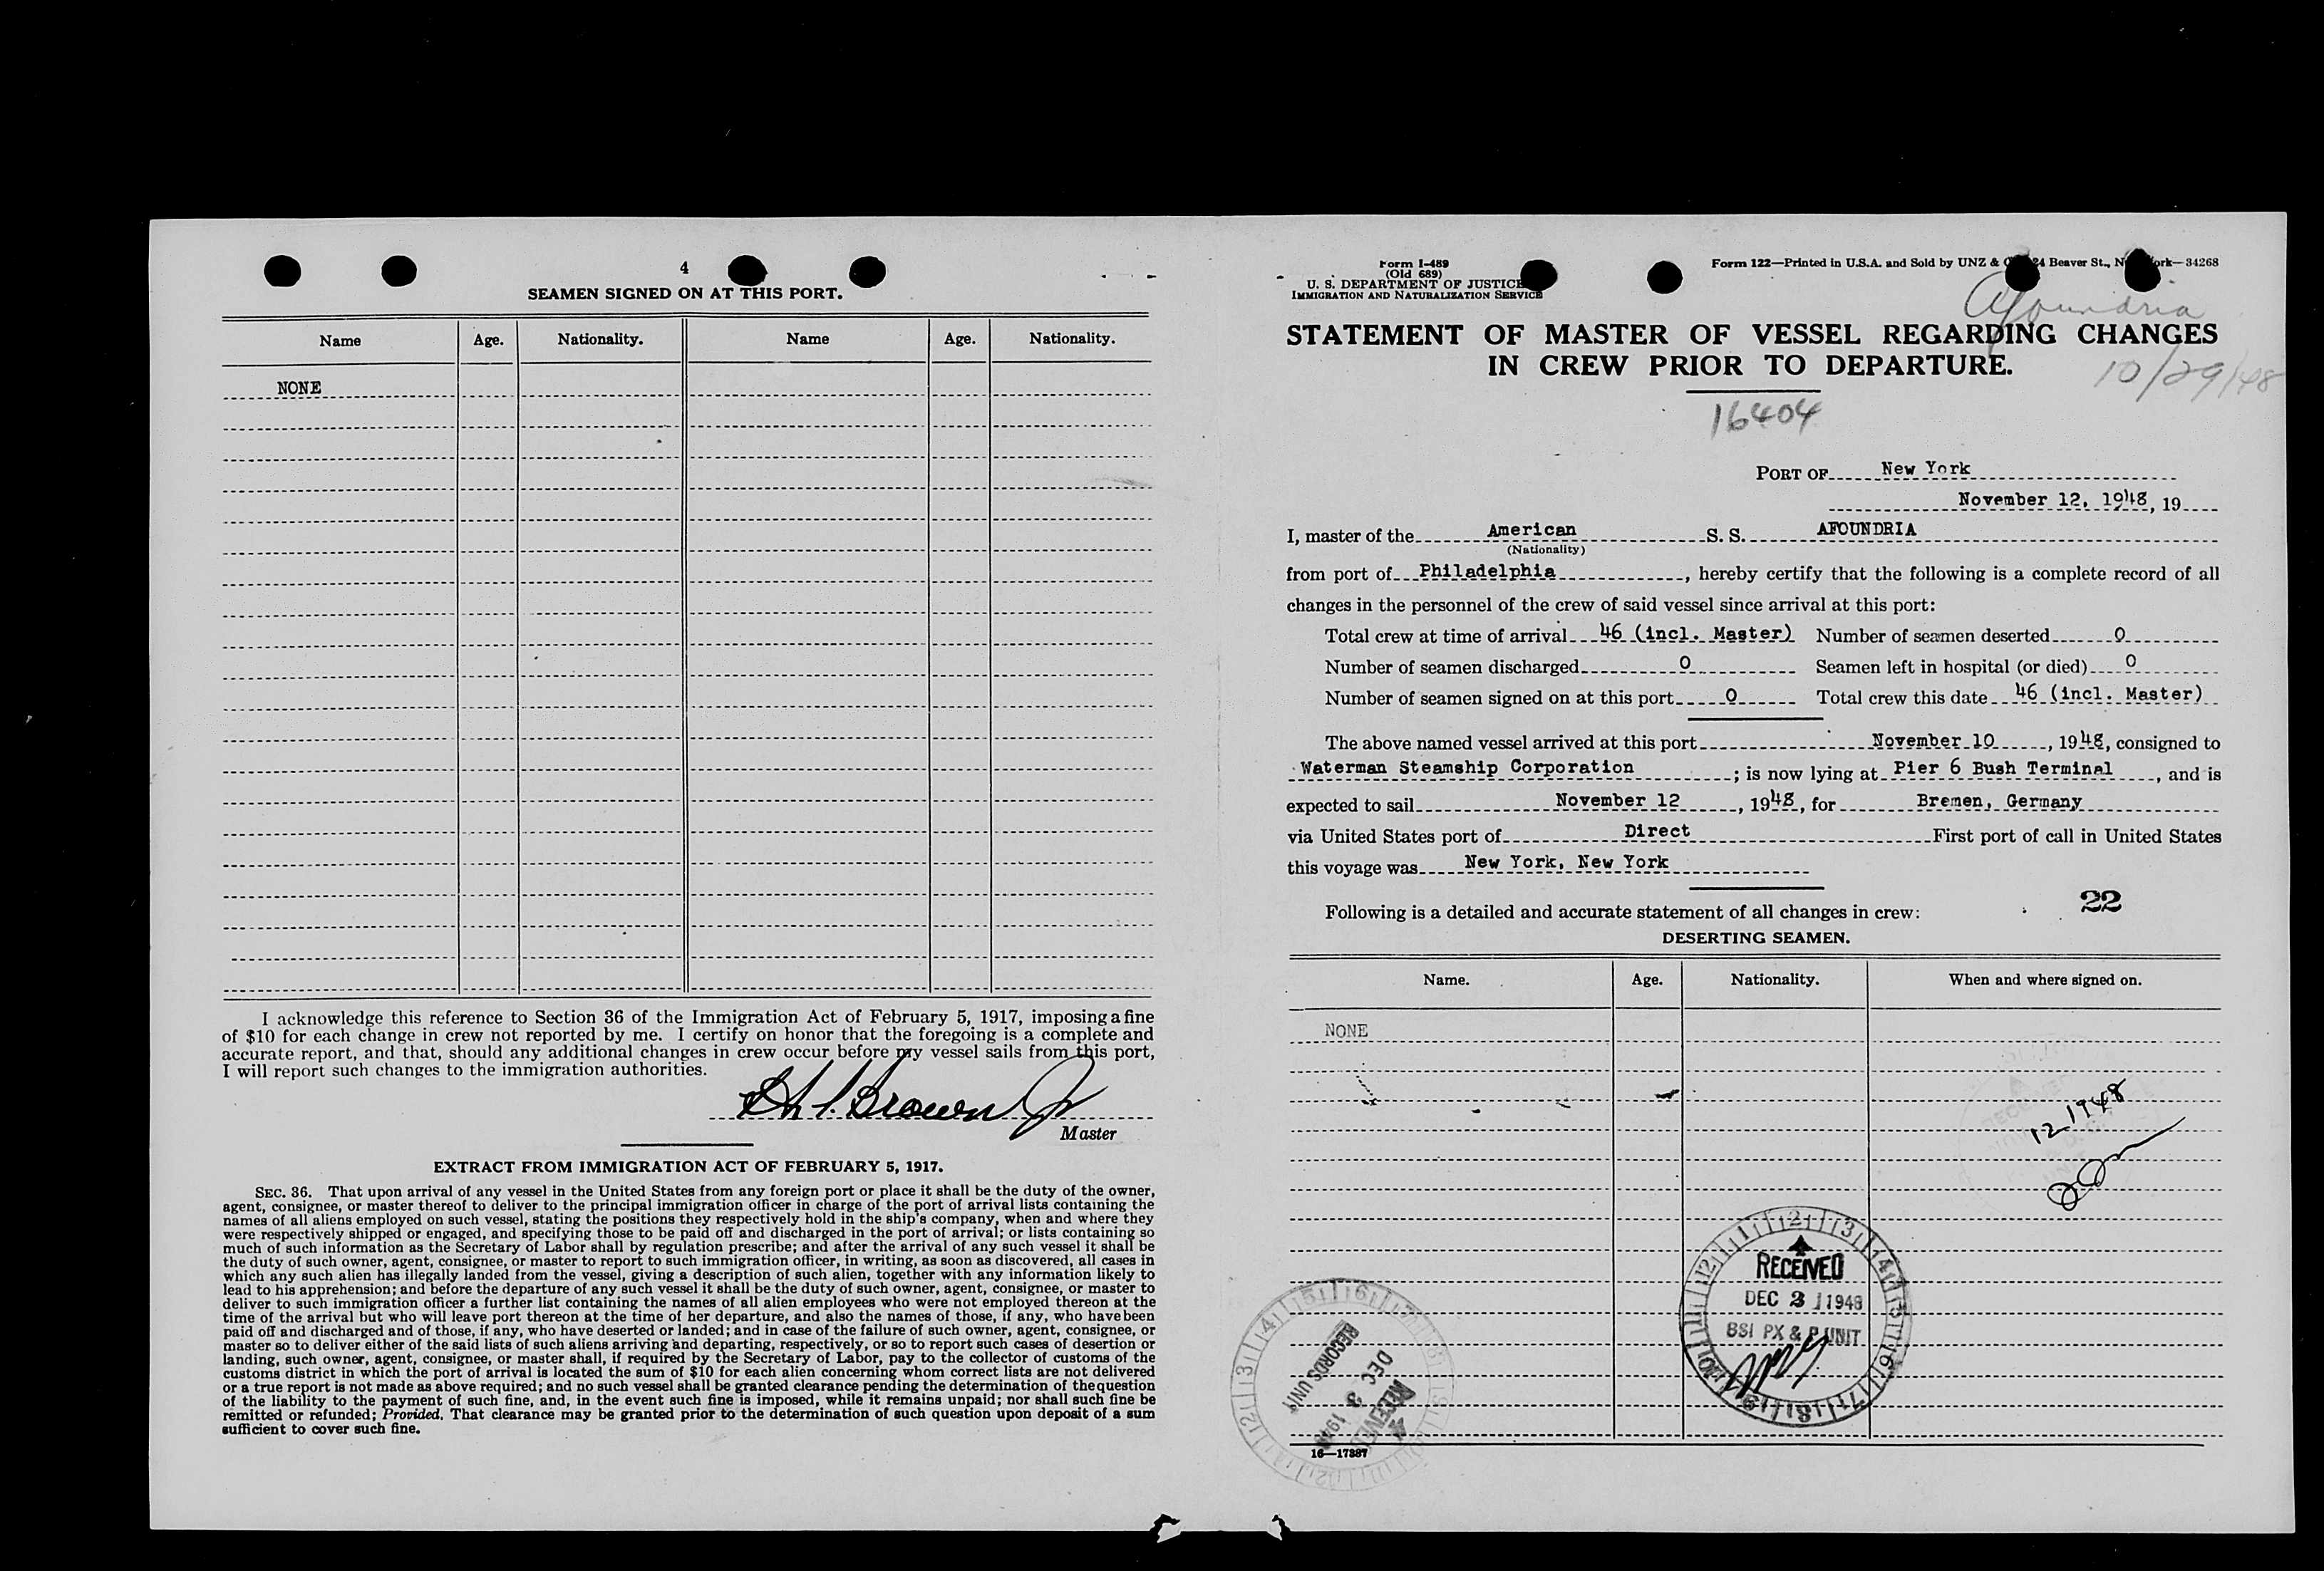 4
SEAMEN SIGNED ON AT THIS PORT.
Name Age. Nationality. Name Age. Nationality.
NONE
I acknowledge this reference to Section 36 of the Immigration Act of February 5, 1917, imposing a fine
of $10 for each change in crew not reported by me. I certify on honor that the foregoing is a complete and
accurate report, and that, should any additional changes in crew occur before my vessel sails from this port,
I will report such changes to the immigration authorities.
Brown Jr
Master
EXTRACT FROM IMMIGRATION ACT OF FEBRUARY 5, 1917.
SEC. 36. That upon arrival of any vessel in the United States from any foreign port or place it shall be the duty of the owner,
agent, consignee, or master thereof to deliver to the principal immigration officer in charge of the port of arrival lists containing the
names of all aliens employed on such vessel, stating the positions they respectively hold in the ship's company, when and where they
were respectively shipped or engaged, and specifying those to be paid off and discharged in the port of arrival; or lists containing so
much of such information as the Secretary of Labor shall by regulation prescribe; and after the arrival of any such vessel it shall be
the duty of such owner, agent, consignee, or master to report to such immigration officer, in writing, as soon as discovered, all cases in
which any such alien has illegally landed from the vessel, giving a description of such alien, together with any information likely to
lead to his apprehension; and before the departure of any such vessel it shall be the duty of such owner, agent, consignee, or master to
deliver to such immigration officer a further list containing the names of all alien employees who were not employed thereon at the
time of the arrival but who will leave port thereon at the time of her departure, and also the names of those, if any, who have been
paid off and discharged and of those, if any, who have deserted or landed; and in case of the failure of such owner, agent, consignee, or
master so to deliver either of the said lists of such aliens arriving and departing, respectively, or so to report such cases of desertion or
landing, such owner, agent, consignee, or master shall, if required by the Secretary of Labor, pay to the collector of customs of the
customs district in which the port of arrival is located the sum of $10 for each alien concerning whom correct lists are not delivered
or a true report is not made as above required; and no such vessel shall be granted clearance pending the determination of the question
of the liability to the payment of such fine, and, in the event such fine is imposed, while it remains unpaid; nor shall such fine be
remitted or refunded; Provided, That clearance may be granted prior to the determination of such question upon deposit of a sum
sufficient to cover such fine.
Form I-489
(Old 689)
U. S. DEPARTMENT OF JUSTICE
IMMIGRATION AND NATURALIZATION SERVICE
Form 122—Printed in U.S.A. and Sold by UNZ & 24 Beaver St., 34268
Afoundria
STATEMENT OF MASTER OF VESSEL REGARDING CHANGES
IN CREW PRIOR TO DEPARTURE.
10/29/48
16404
PORT OF New York
November 12, 1948, 19
I, master of the American S. S. AFOUNDRIA
(Nationality)
from port of Philadelphia, hereby certify that the following is a complete record of all
changes in the personnel of the crew of said vessel since arrival at this port:
Total crew at time of arrival 46 (incl. Master) Number of seamen deserted 0
Number of seamen discharged 0 Seamen left in hospital (or died) 0
Number of seamen signed on at this port 0 Total crew this date 46 (incl. Master)
The above named vessel arrived at this port November 10, 1948, consigned to
Waterman Steamship Corporation; is now lying at Pier 6 Bush Terminal, and is
expected to sail November 12, 1948, for Bremen, Germany
via United States port of Direct First port of call in United States
this voyage was New York, New York
Following is a detailed and accurate statement of all changes in crew: 22
DESERTING SEAMEN.
Name. Age. Nationality. When and where signed on.
NONE
12 1948
RECEIVED
DEC 3 1948
BSI PX & P UNIT
RECORDS UNIT
DEC 3 1948
RECEIVED
16—17387